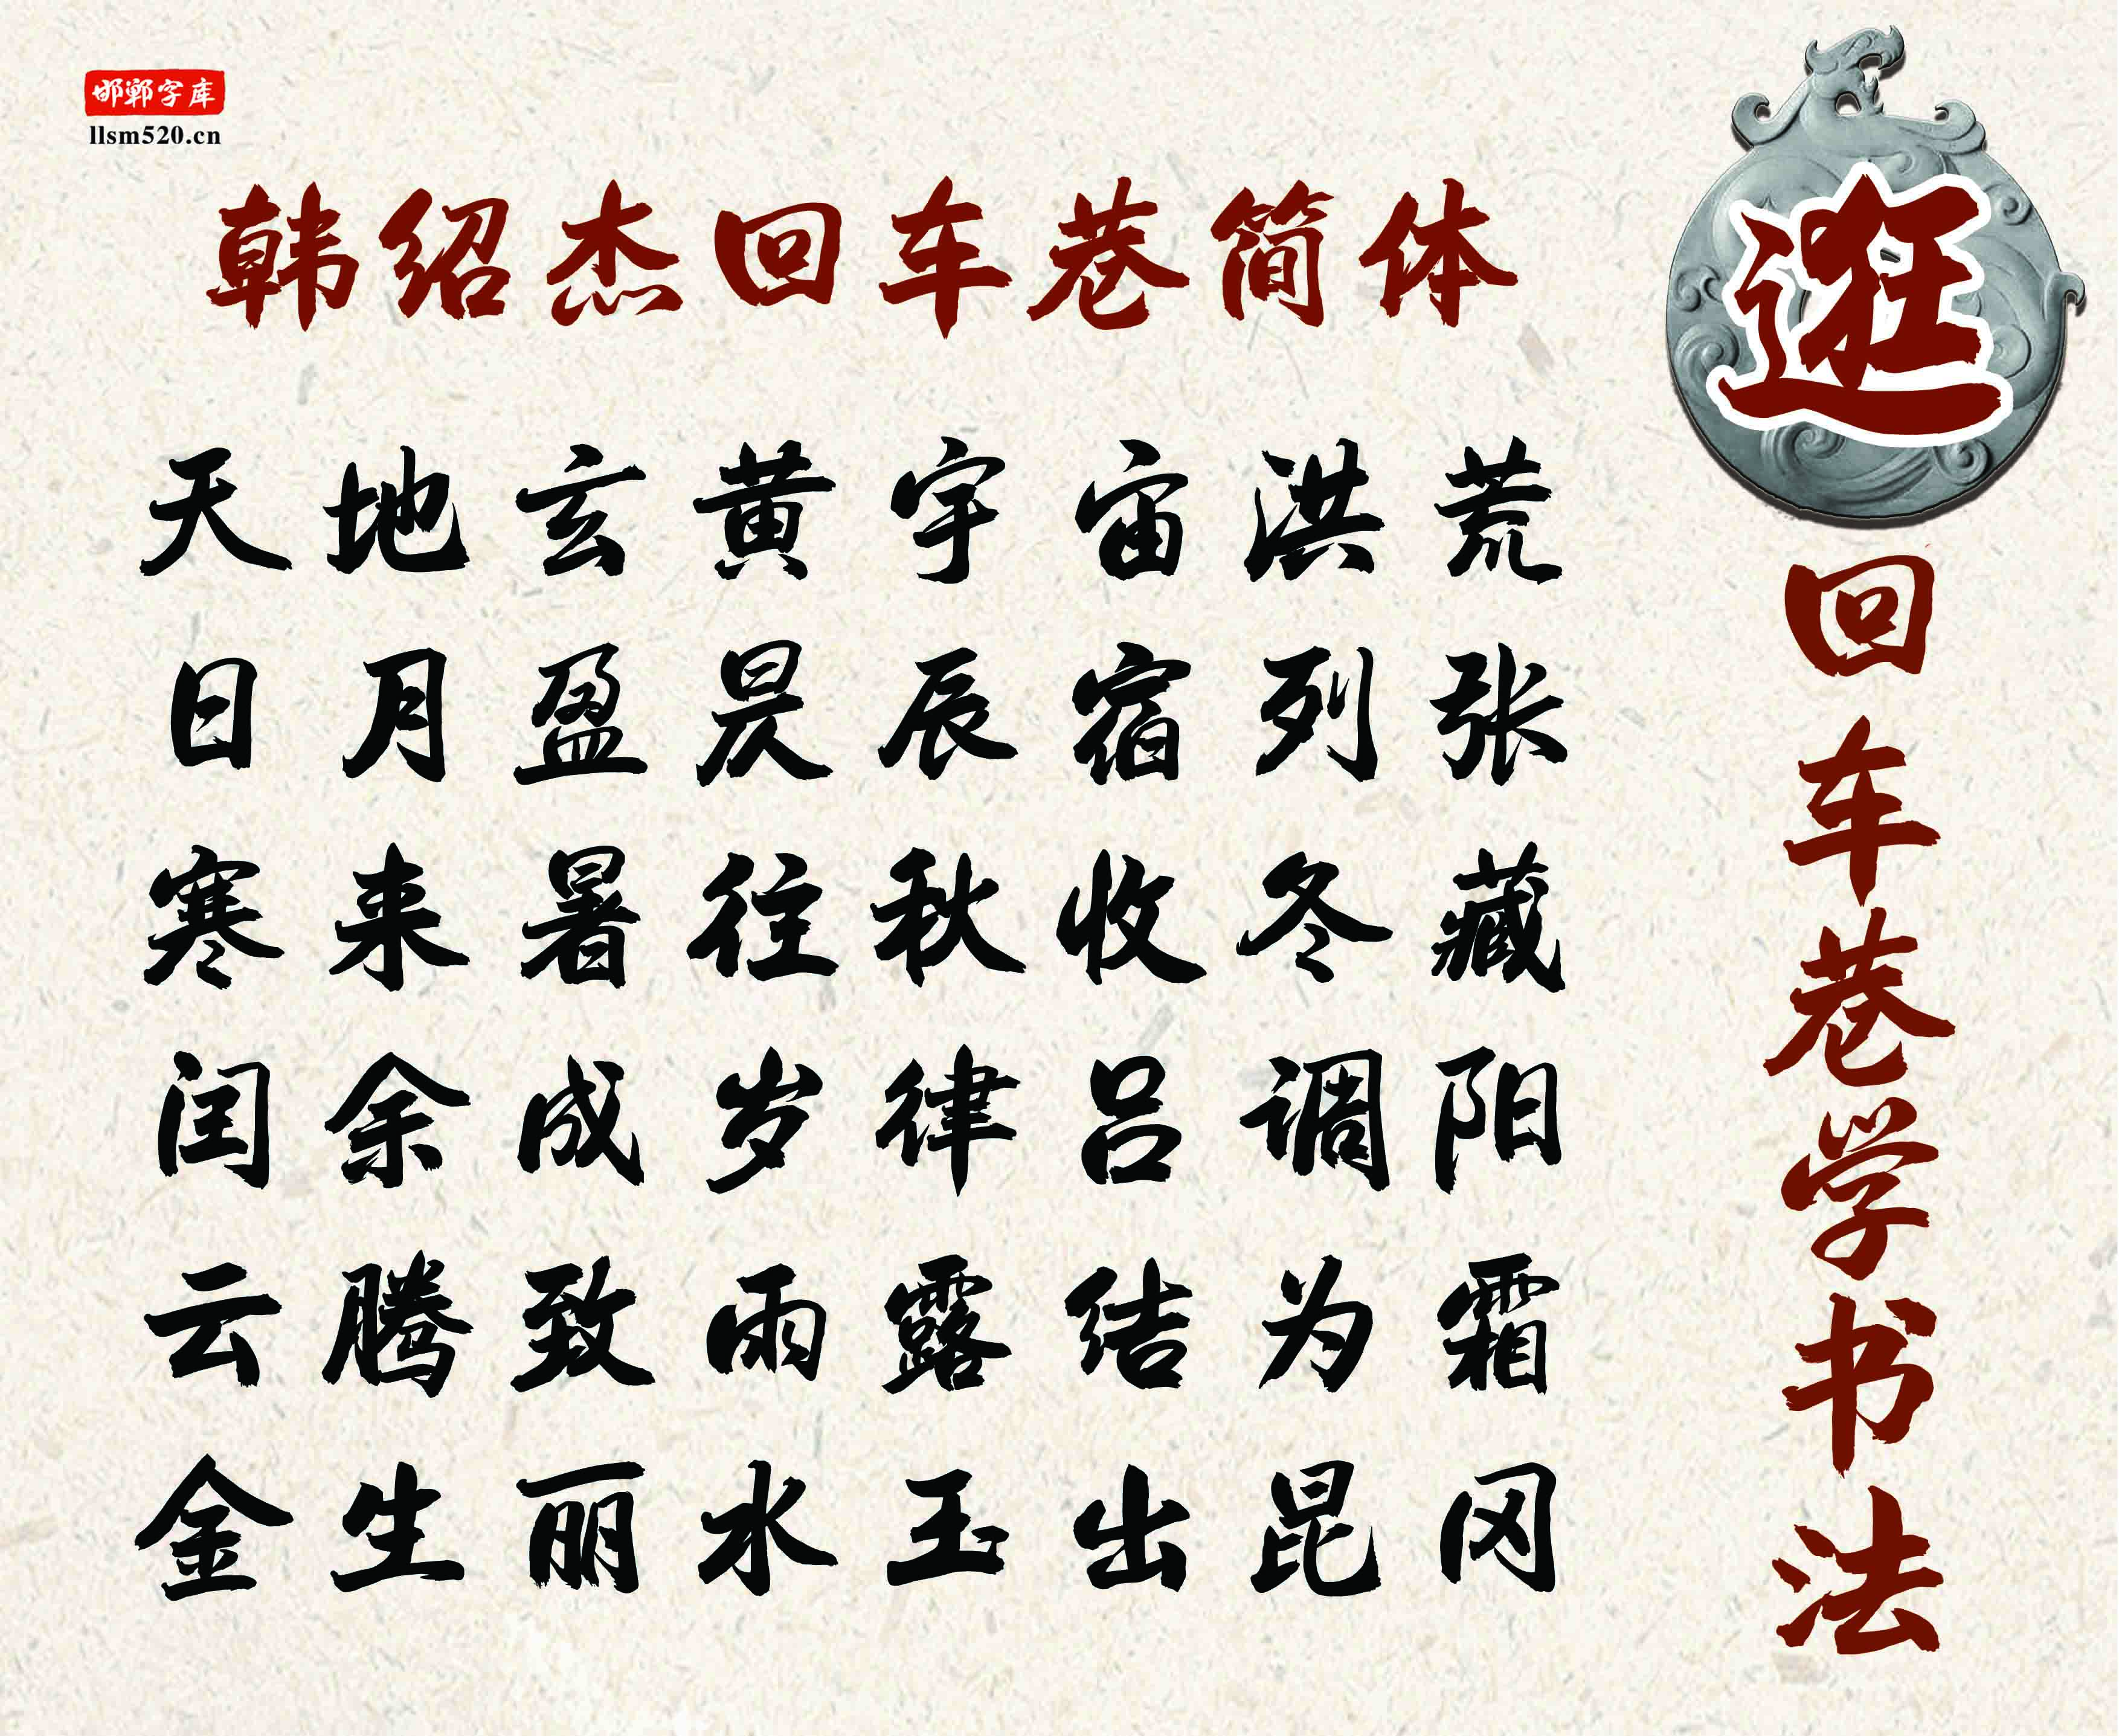 邯郸字库
llsm520.cn
韩绍杰回车巷简体
天地玄黄宇宙洪荒
日月盈昃辰宿列张
寒来暑往秋收冬藏
闰余成岁律吕调阳
云腾致雨露结为霜
金生丽水玉出昆冈
逛
回车巷学书法